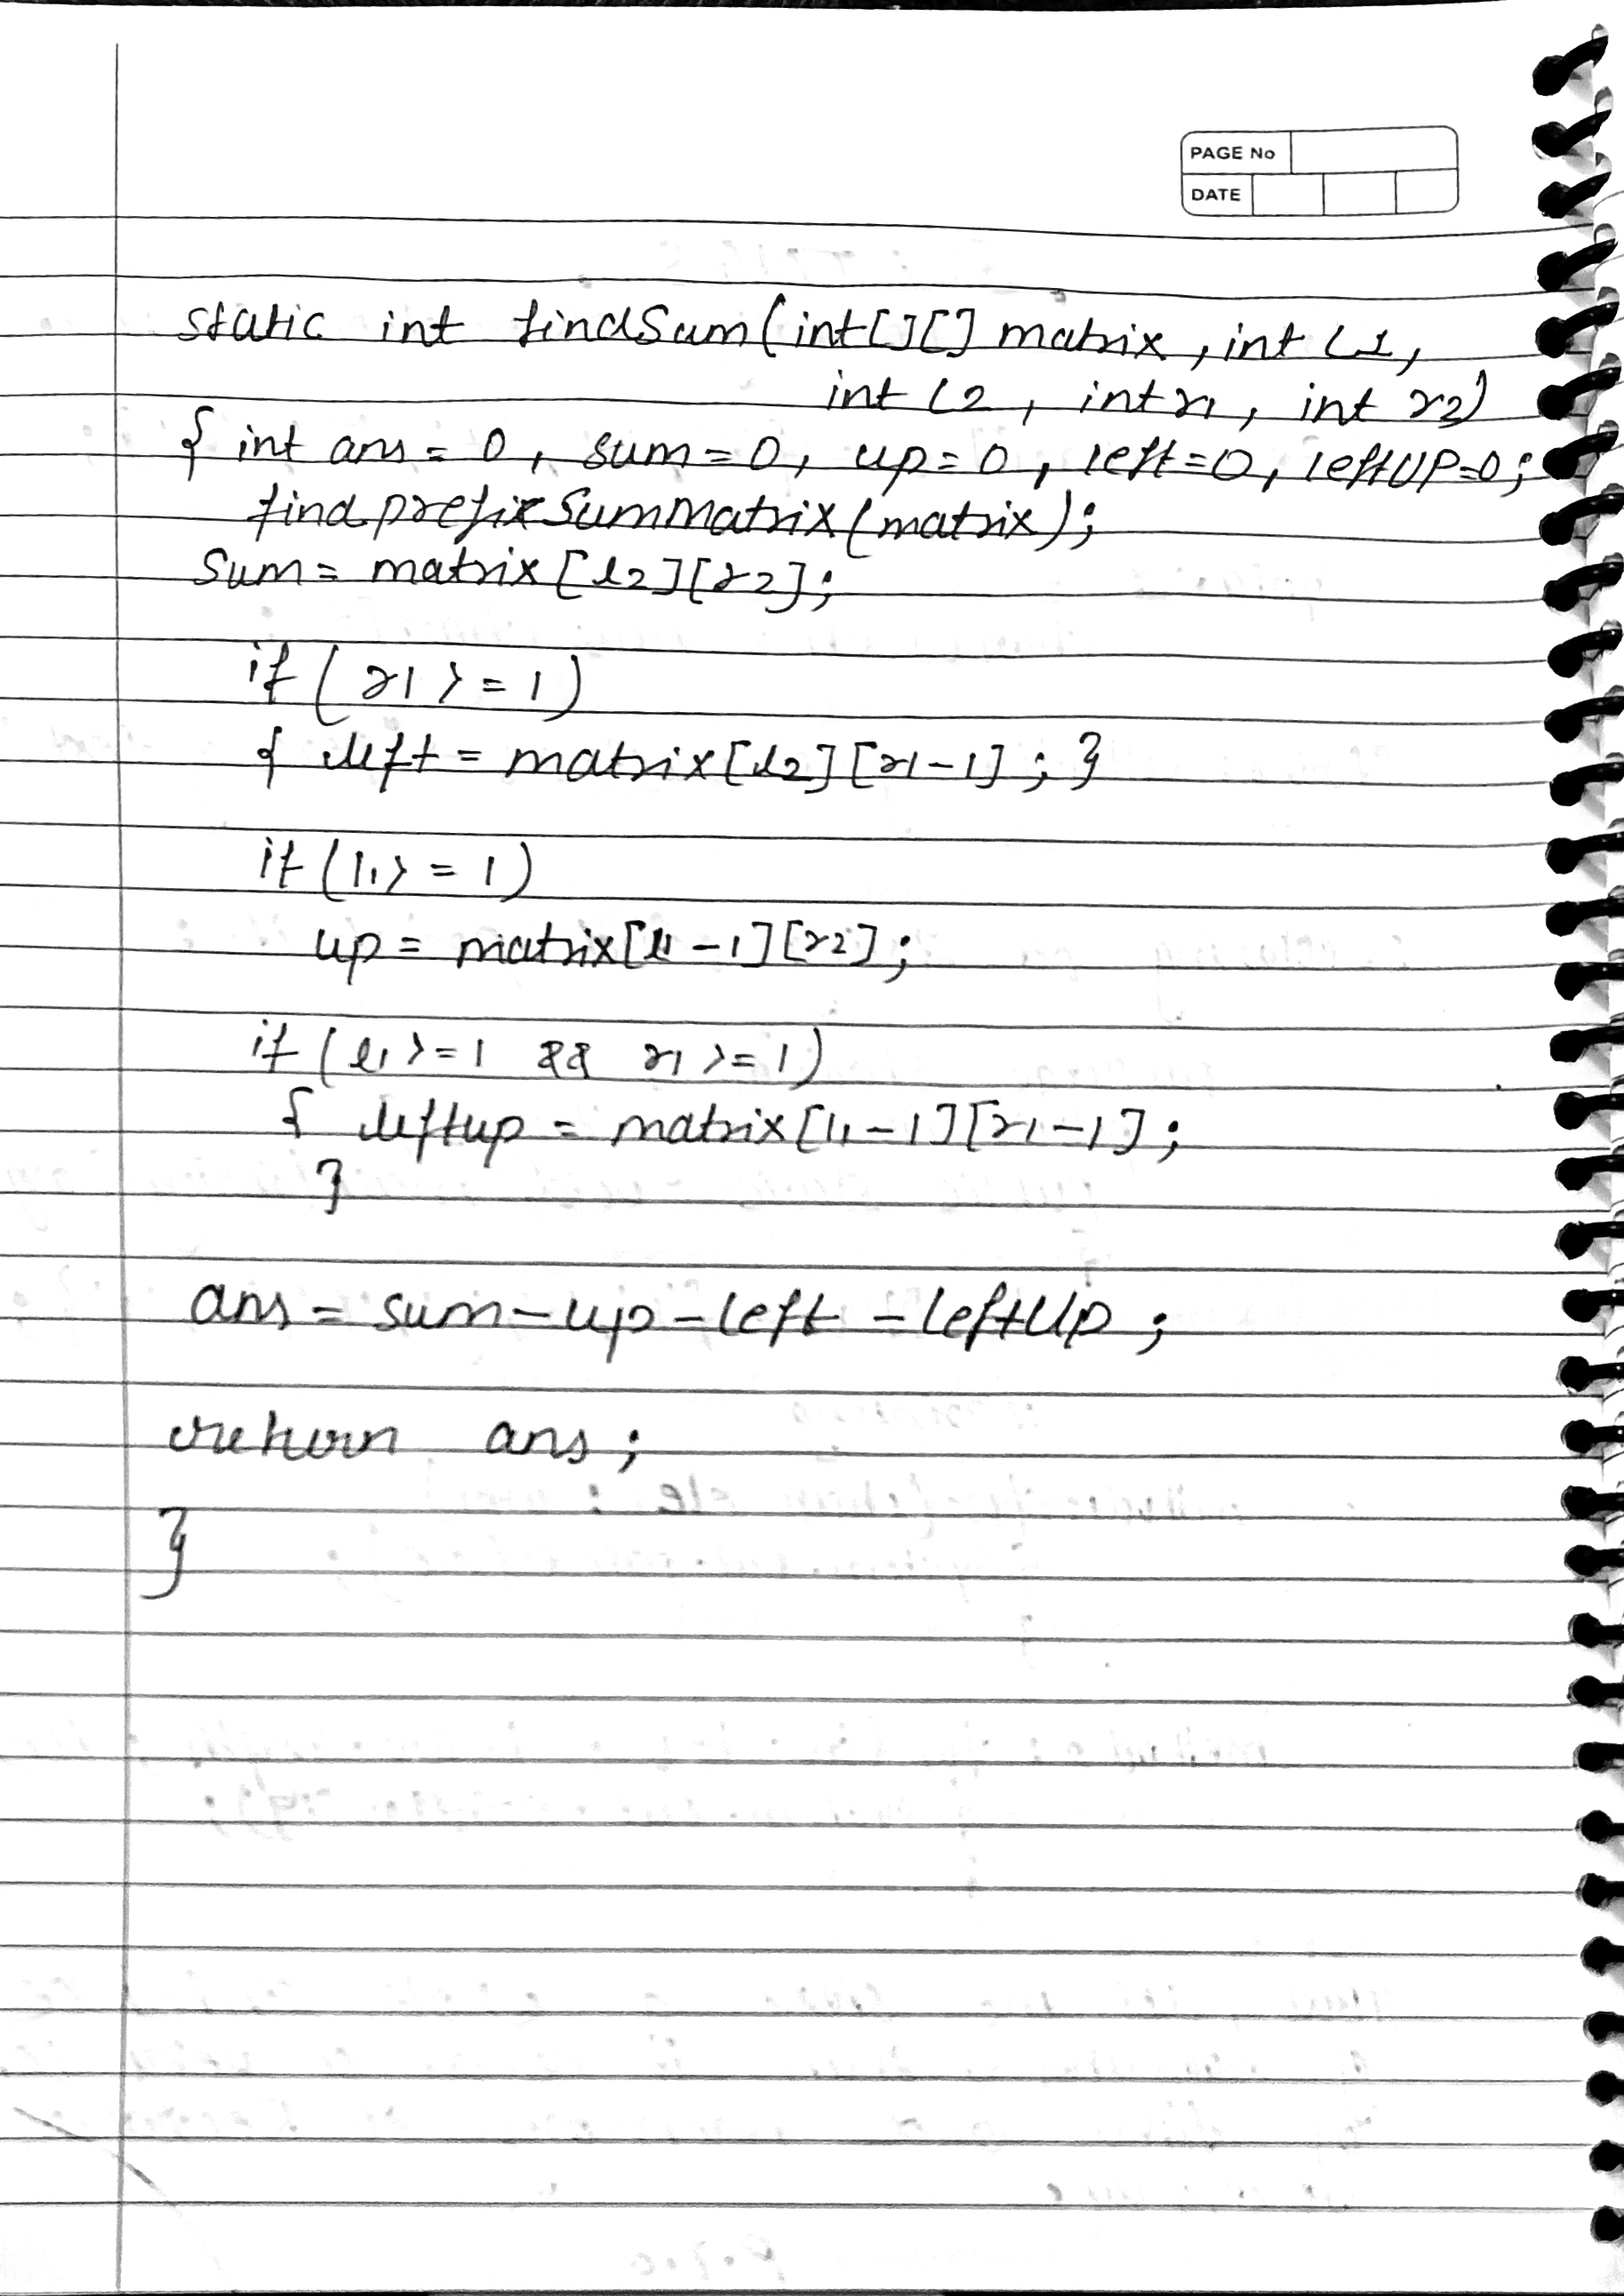 PAGE No
DATE
static int findSum(int[][] matrix, int L1,
int L2, int r1, int r2)
{ int ans = 0, sum = 0, up = 0, left = 0, leftUP = 0;
findprefixSumMatrix(matrix);
Sum = matrix[l2][r2];
if (r1 >= 1)
{ left = matrix[l2][r1-1]; }
if (l1 >= 1)
up = matrix[l1-1][r2];
if (l1 >= 1 && r1 >= 1)
{ leftup = matrix[l1-1][r1-1];
}
ans = sum - up - left - leftUp;
return ans;
}